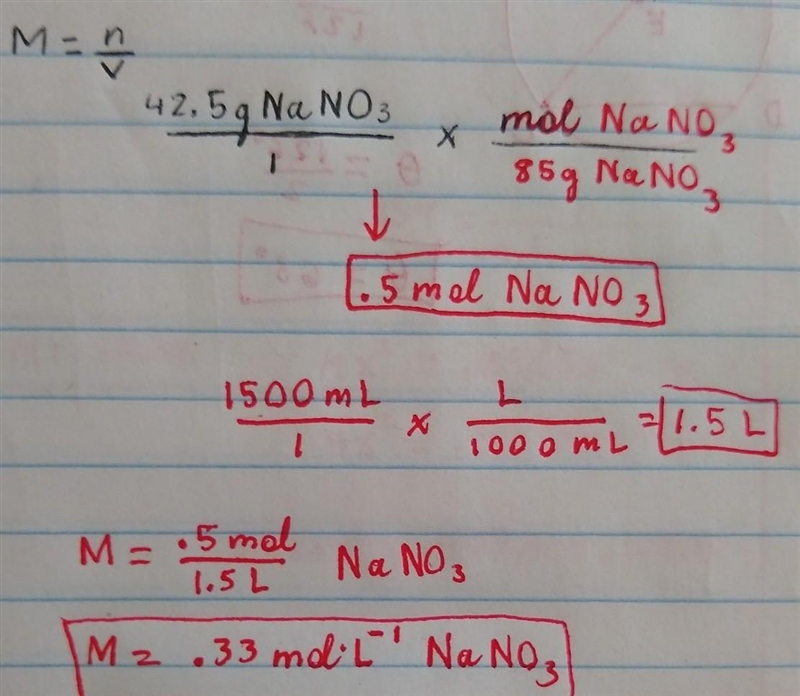 M = n/v
42.5g NaNO₃/1 x mol NaNO₃/85g NaNO₃
↓
.5 mol NaNO₃
1500 mL/1 x L/1000 mL = 1.5 L
M = .5 mol/1.5 L NaNO₃
M = .33 mol·L⁻¹ NaNO₃